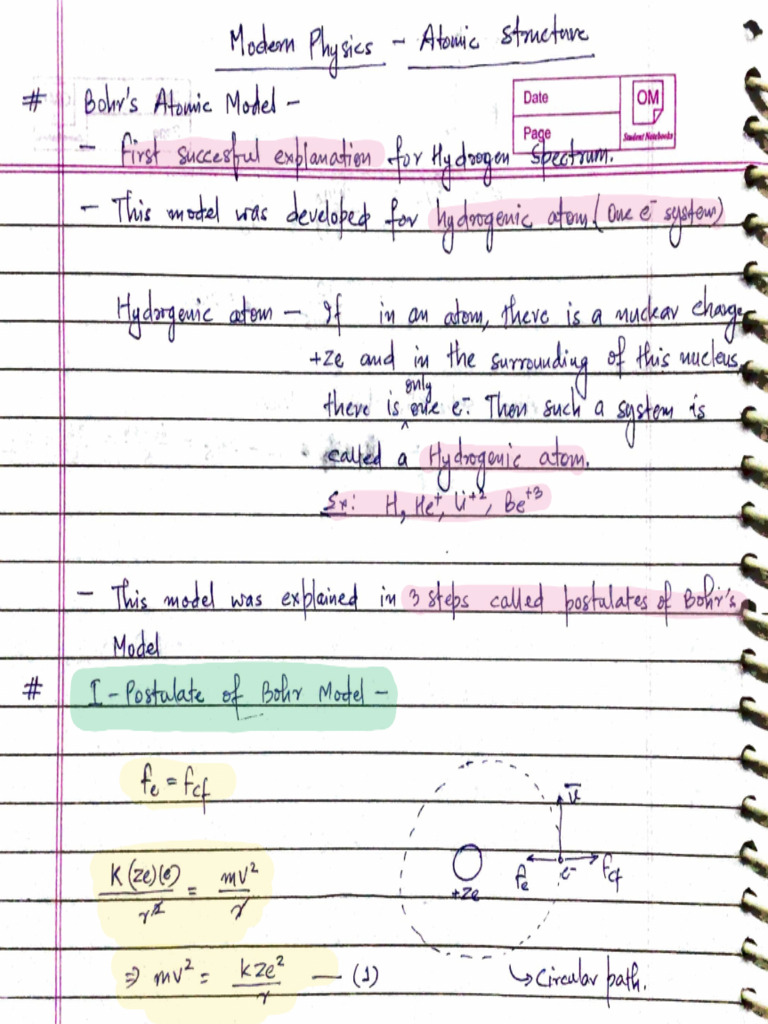 Modern Physics - Atomic Structure
# Bohr's Atomic Model -
Date
OM
Page
Student Notebooks
- first succesful explanation for Hydrogen Spectrum.
- This model was developed for hydrogenic atom (One e⁻ system)
Hydrogenic atom - If in an atom, there is a nuclear charge
+Ze and in the surrounding of this nucleus
only
there is ^ one e⁻. Then such a system is
called a Hydrogenic atom.
Ex: H, He⁺, Li⁺², Be⁺³
- This model was explained in 3 steps called postulates of Bohr's
Model
# I - Postulate of Bohr Model -
fe = fcf
v̅
K(Ze)(e)/r² = mv²/r
fe e⁻ fcf
+Ze
⇒ mv² = kZe²/r — (1)
↳ Circular path.